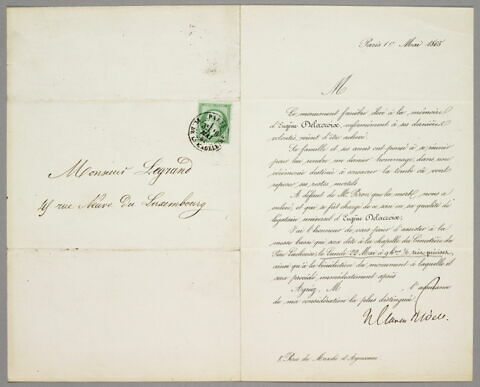 Monsieur Legrand
45 rue Neuve du Luxembourg
Paris 10 Mai 1865
M
Le monument funèbre élevé à la mémoire
d'Eugène Delacroix, conformément à ses dernières
volontés, vient d'être achevé.
Sa famille et ses amis ont pensé à se réunir
pour lui rendre un dernier hommage, dans une
cérémonie destinée à consacrer la tombe où vont
reposer ses restes mortels.
A défaut de M. Piron, que la mort nous a
enlevé, et que se fût chargé de ce soin en sa qualité de
légataire universel d'Eugène Delacroix;
J'ai l'honneur de vous prier d'assister à la
messe basse qui sera dite à la chapelle du Cimetière du
Père Lachaise, le Lundi 22 Mai à 9h ½ très précises,
ainsi qu'à la bénédiction du monument à laquelle il
sera procédé immédiatement après.
Agréez, M l'assurance
de ma considération la plus distinguée.